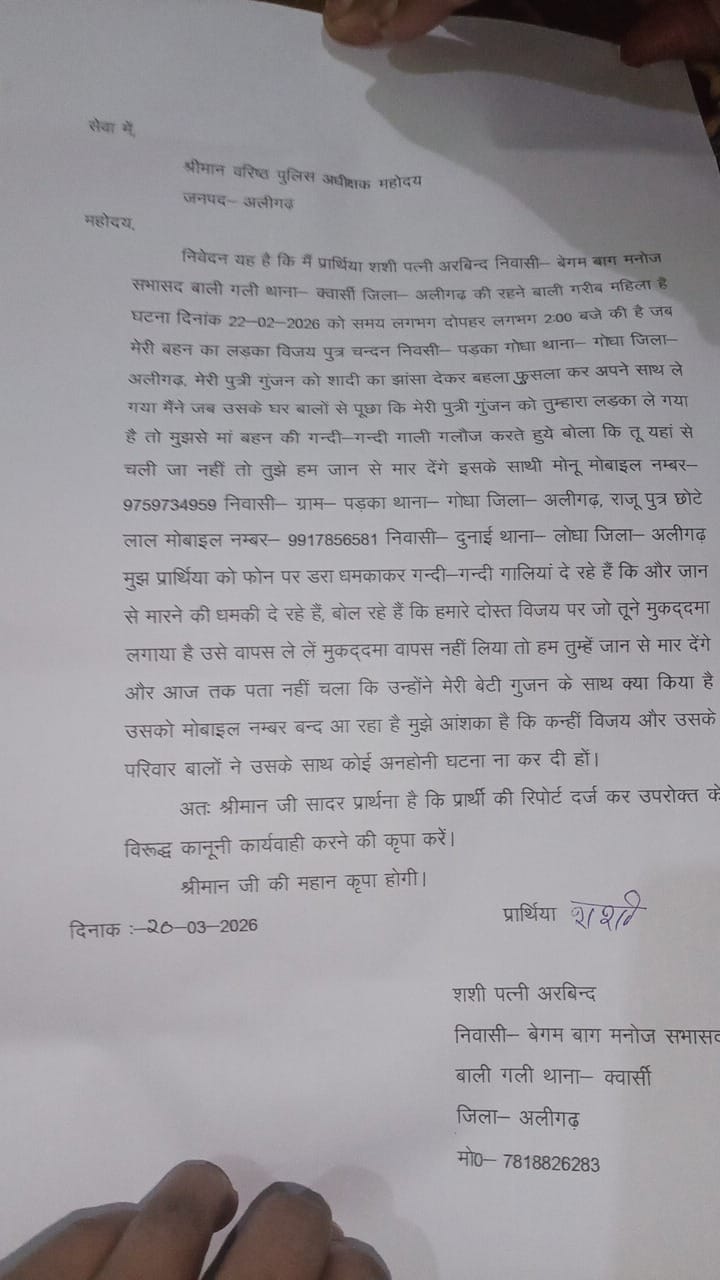 सेवा में,
श्रीमान वरिष्ठ पुलिस अधीक्षक महोदय
जनपद– अलीगढ़
महोदय,
निवेदन यह है कि मैं प्रार्थिया शशी पत्नी अरबिन्द निवासी– बेगम बाग मनोज
सभासद बाली गली थाना– क्वार्सी जिला– अलीगढ़ की रहने बाली गरीब महिला है
घटना दिनांक 22–02–2026 को समय लगभग दोपहर लगभग 2:00 बजे की है जब
मेरी बहन का लड़का विजय पुत्र चन्दन निवसी– पड़का गोधा थाना– गोधा जिला–
अलीगढ़, मेरी पुत्री गुंजन को शादी का झांसा देकर बहला फुसला कर अपने साथ ले
गया मैंने जब उसके घर बालों से पूछा कि मेरी पुत्री गुंजन को तुम्हारा लड़का ले गया
है तो मुझसे मां बहन की गन्दी–गन्दी गाली गलौज करते हुये बोला कि तू यहां से
चली जा नहीं तो तुझे हम जान से मार देंगे इसके साथी मोनू मोबाइल नम्बर–
9759734959 निवासी– ग्राम– पड़का थाना– गोधा जिला– अलीगढ़, राजू पुत्र छोटे
लाल मोबाइल नम्बर– 9917856581 निवासी– दुनाई थाना– लोधा जिला– अलीगढ़
मुझ प्रार्थिया को फोन पर डरा धमकाकर गन्दी–गन्दी गालियां दे रहे हैं कि और जान
से मारने की धमकी दे रहे हैं, बोल रहे हैं कि हमारे दोस्त विजय पर जो तूने मुकद्दमा
लगाया है उसे वापस ले लें मुकद्दमा वापस नहीं लिया तो हम तुम्हें जान से मार देंगे
और आज तक पता नहीं चला कि उन्होंने मेरी बेटी गुजन के साथ क्या किया है
उसको मोबाइल नम्बर बन्द आ रहा है मुझे आंशका है कि कन्हीं विजय और उसके
परिवार बालों ने उसके साथ कोई अनहोनी घटना ना कर दी हों।
अतः श्रीमान जी सादर प्रार्थना है कि प्रार्थी की रिपोर्ट दर्ज कर उपरोक्त के
विरूद्ध कानूनी कार्यवाही करने की कृपा करें।
श्रीमान जी की महान कृपा होगी।
दिनाक :–20–03–2026
प्रार्थिया शशी
शशी पत्नी अरबिन्द
निवासी– बेगम बाग मनोज सभासद
बाली गली थाना– क्वार्सी
जिला– अलीगढ़
मो0– 7818826283